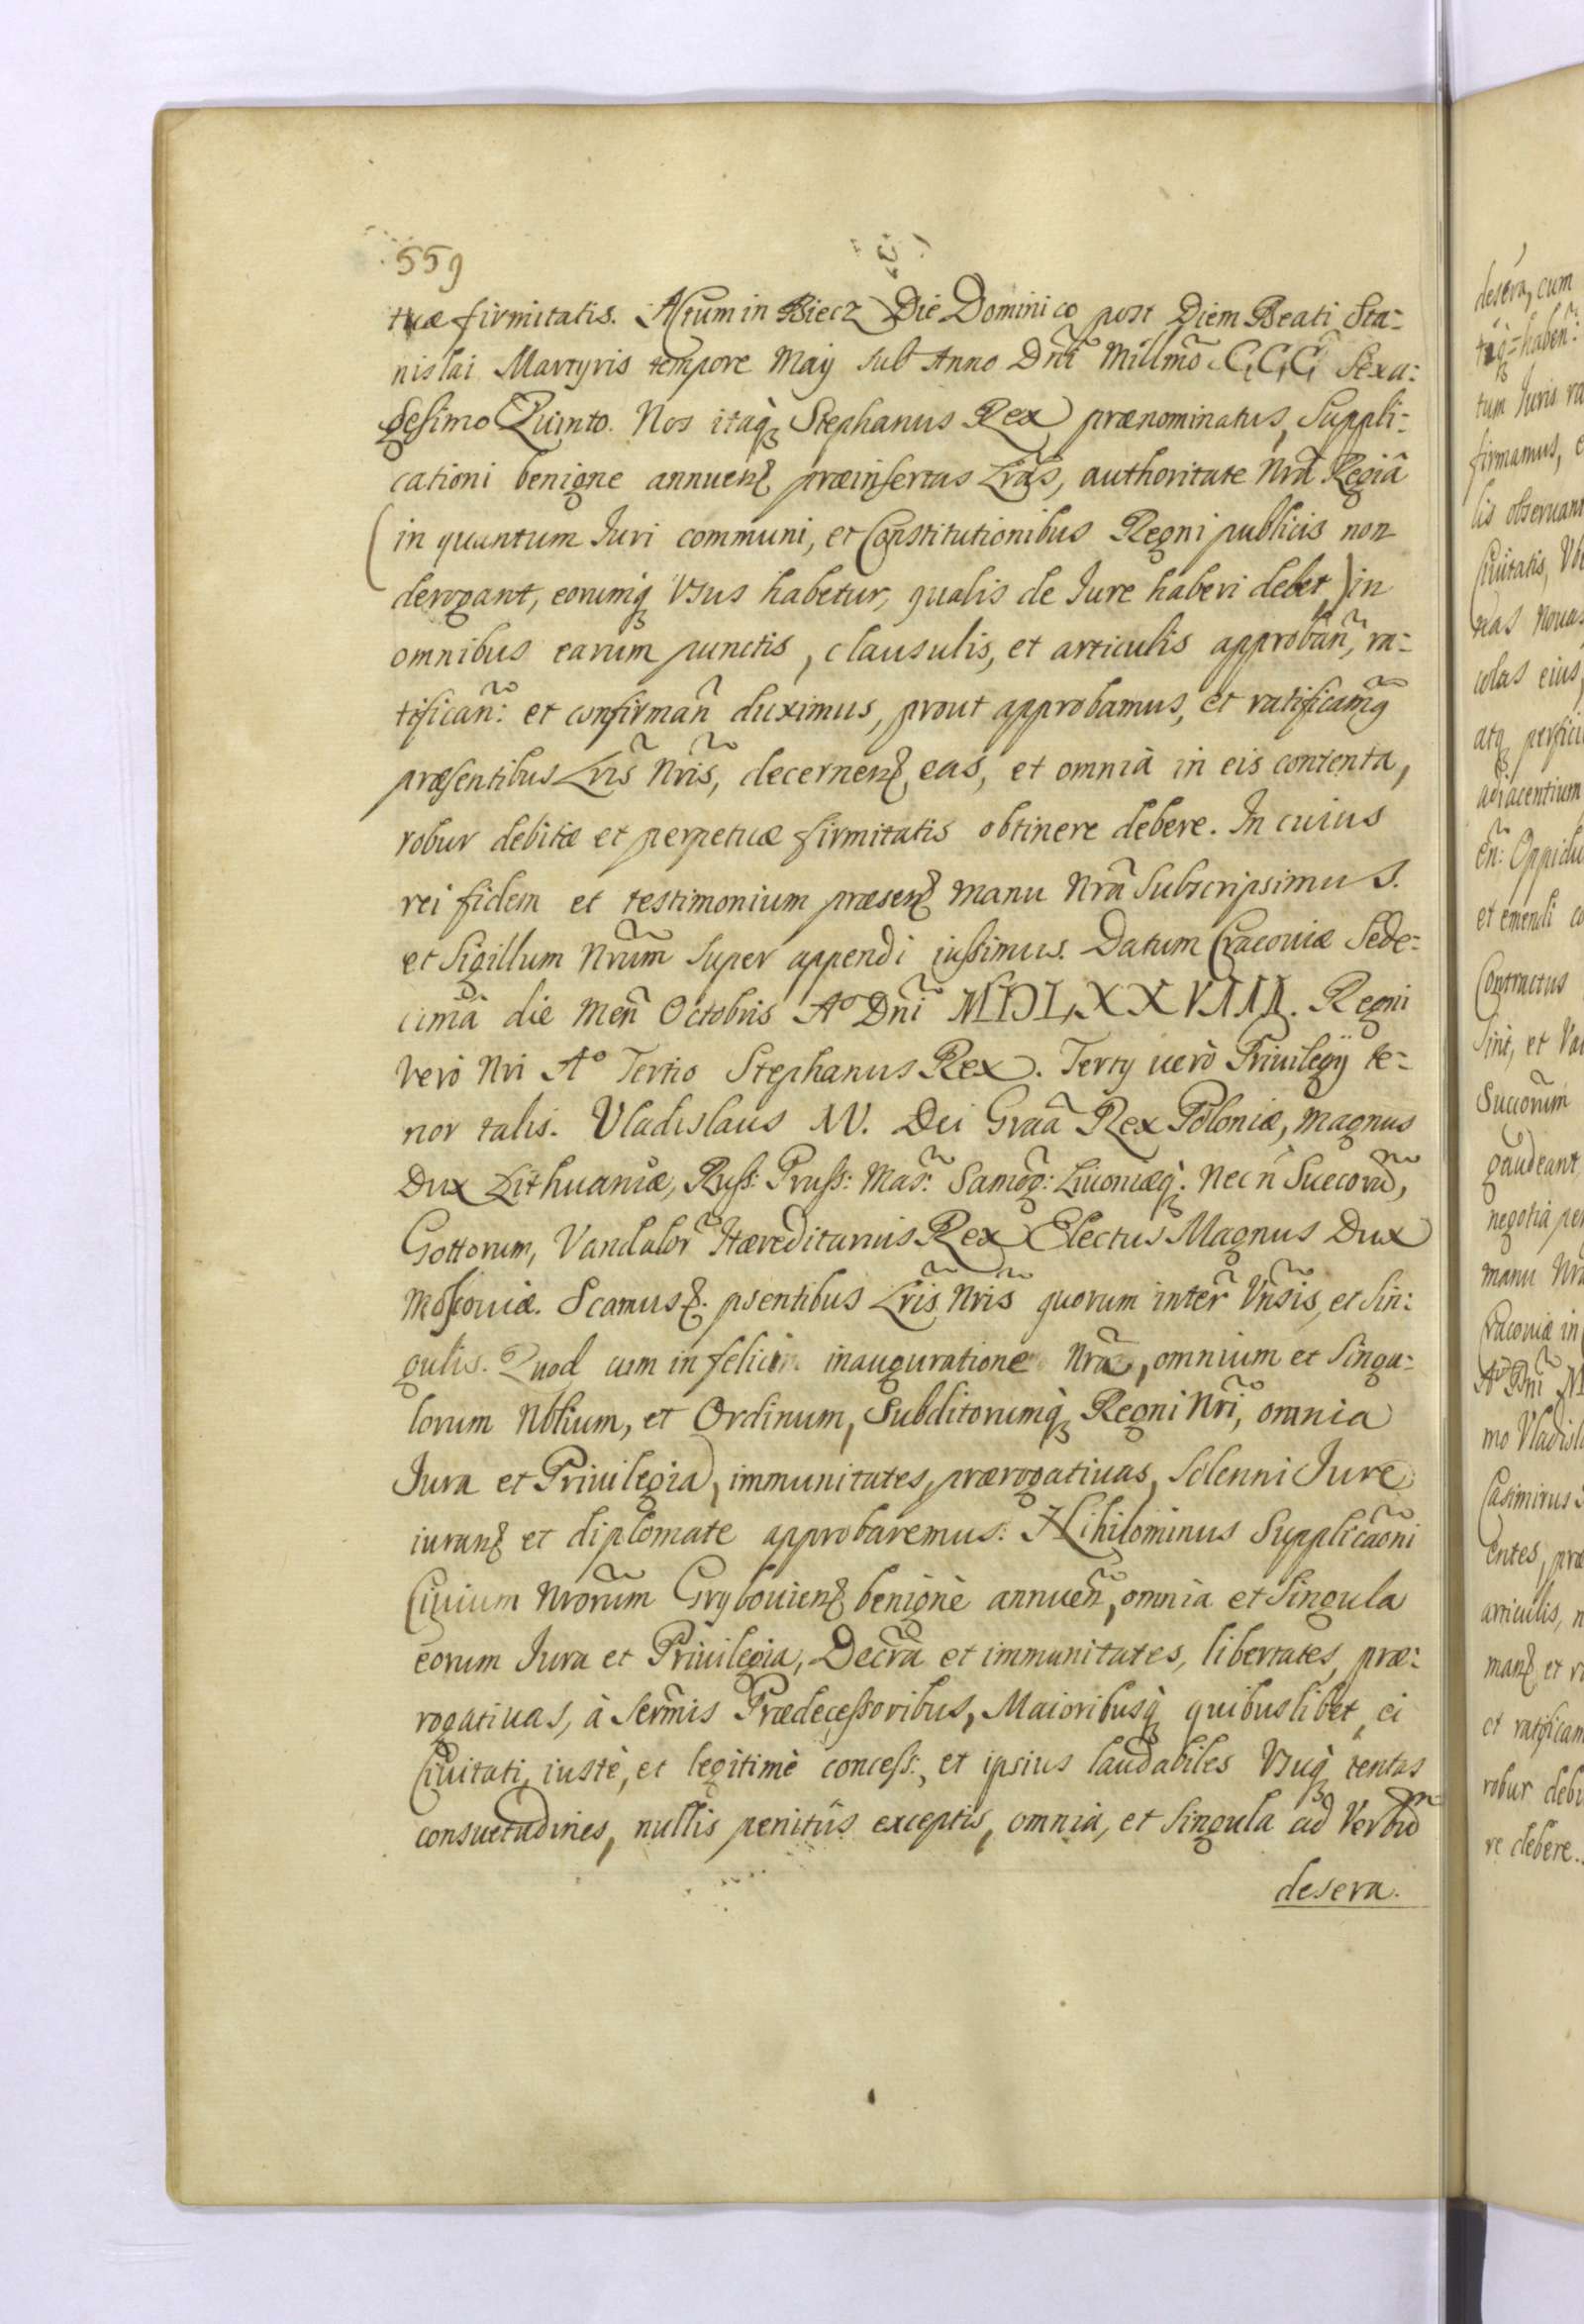 559
tuæ firmitatis. Actum in Biecz Die Dominico post Diem Beati Sta=
nislai Martyris tempore Maÿ sub Anno Dñi Millmõ C,C,C, Sexa:
gesimo Quinto. Nos itaq̃ Stephanus Rex prænominatus, Suppli:
cationi benigne annuenꝫ præinsertas Lrãs, authoritate Nrã Regiâ
(in quantum Iuri communi, et Constitutionibus Regni publicis non
derogant, eorumq̃ Vsus habetur, qualis de Iure haberi debet) in
omnibus earum punctis, clausulis, et articulis approbãn, ra:
tificañ: et confirmañ duximus, prout approbamus, et ratificamꝰ
præsentibus Lris̃ Nris̃, decernenꝫ, eas, et omnià in eis contenta,
robur debitæ et perpetuæ firmitatis obtinere debere. In cuius
rei fidem et testimonium præsenꝫ manu Nrã Subscripsimus.
et Sigillum Nrum̃ super appendi iussimus. Datum Cracouiæ Sede=
cimâ die Meñ Octobris Aº Dñi MDLXXVIII. Regni
verò Nri Aº Tertio Stephanus Rex. Tertÿ uerò Priuilegÿ te=
nor talis. Vladislaus IV. Dei Graã Rex Poloniæ, magnus
Dux Lithuaniæ, Russ: Pruss: Mas: Samog: Liuoniæq̃. Nec ñ Suecorũ,
Gottorum, Vandalor̃ Hæreditarius Rex Electus Magnus Dux
Moscouiæ. Scamusꝫ. psentibus Lris̃ Nris̃ quorum inter̃ Vnsis̃, et Sin:
gulis. Quod cum in felici inauguratione Nrã, omnium et Singu:
lorum Nblium, et Ordinum, Subditorumq̃ Regni Nrĩ, omnia
Iura et Priuilegia, immunitates, prærogatiuas, Solenni Iure
iuranꝫ et diplomate approbaremus: Nihilominus Supplicaõni
Ciuium Nrorum̃ Grybouienꝫ benignè annueñ, omnia et Singula
eorum Iura et Priuilegia, Decrã et immunitates, libertates, præ:
rogatiuas, à Serm̃is Prædecessoribus, Maioribusq̃ quibuslibet, ei
Ciuitati, iustè, et legitimè concess:, et ipsius laudabiles Vsuq̃ tentas
consuetudines, nullis penitùs exceptis, omnia, et Singula ad Verbũ
desera.
deserà, cum
haben:
tum Iuris ra
firmamus, e
lis obseruant
Ciuitatis, Vb
nas nouas
colas eius,
atq̃ perfici
adiacentium
eñ: Oppidu
et emendi co
Contractus
sint, et Va
Succorum̃
gaudeant,
negotia per
manu Nrã
Cracouiæ in
Aº Dñi M
mo Vladisla
Casimirus
entes, præ
articulis, n
manꝫ et r
et ratifican
robur debi
re debere.